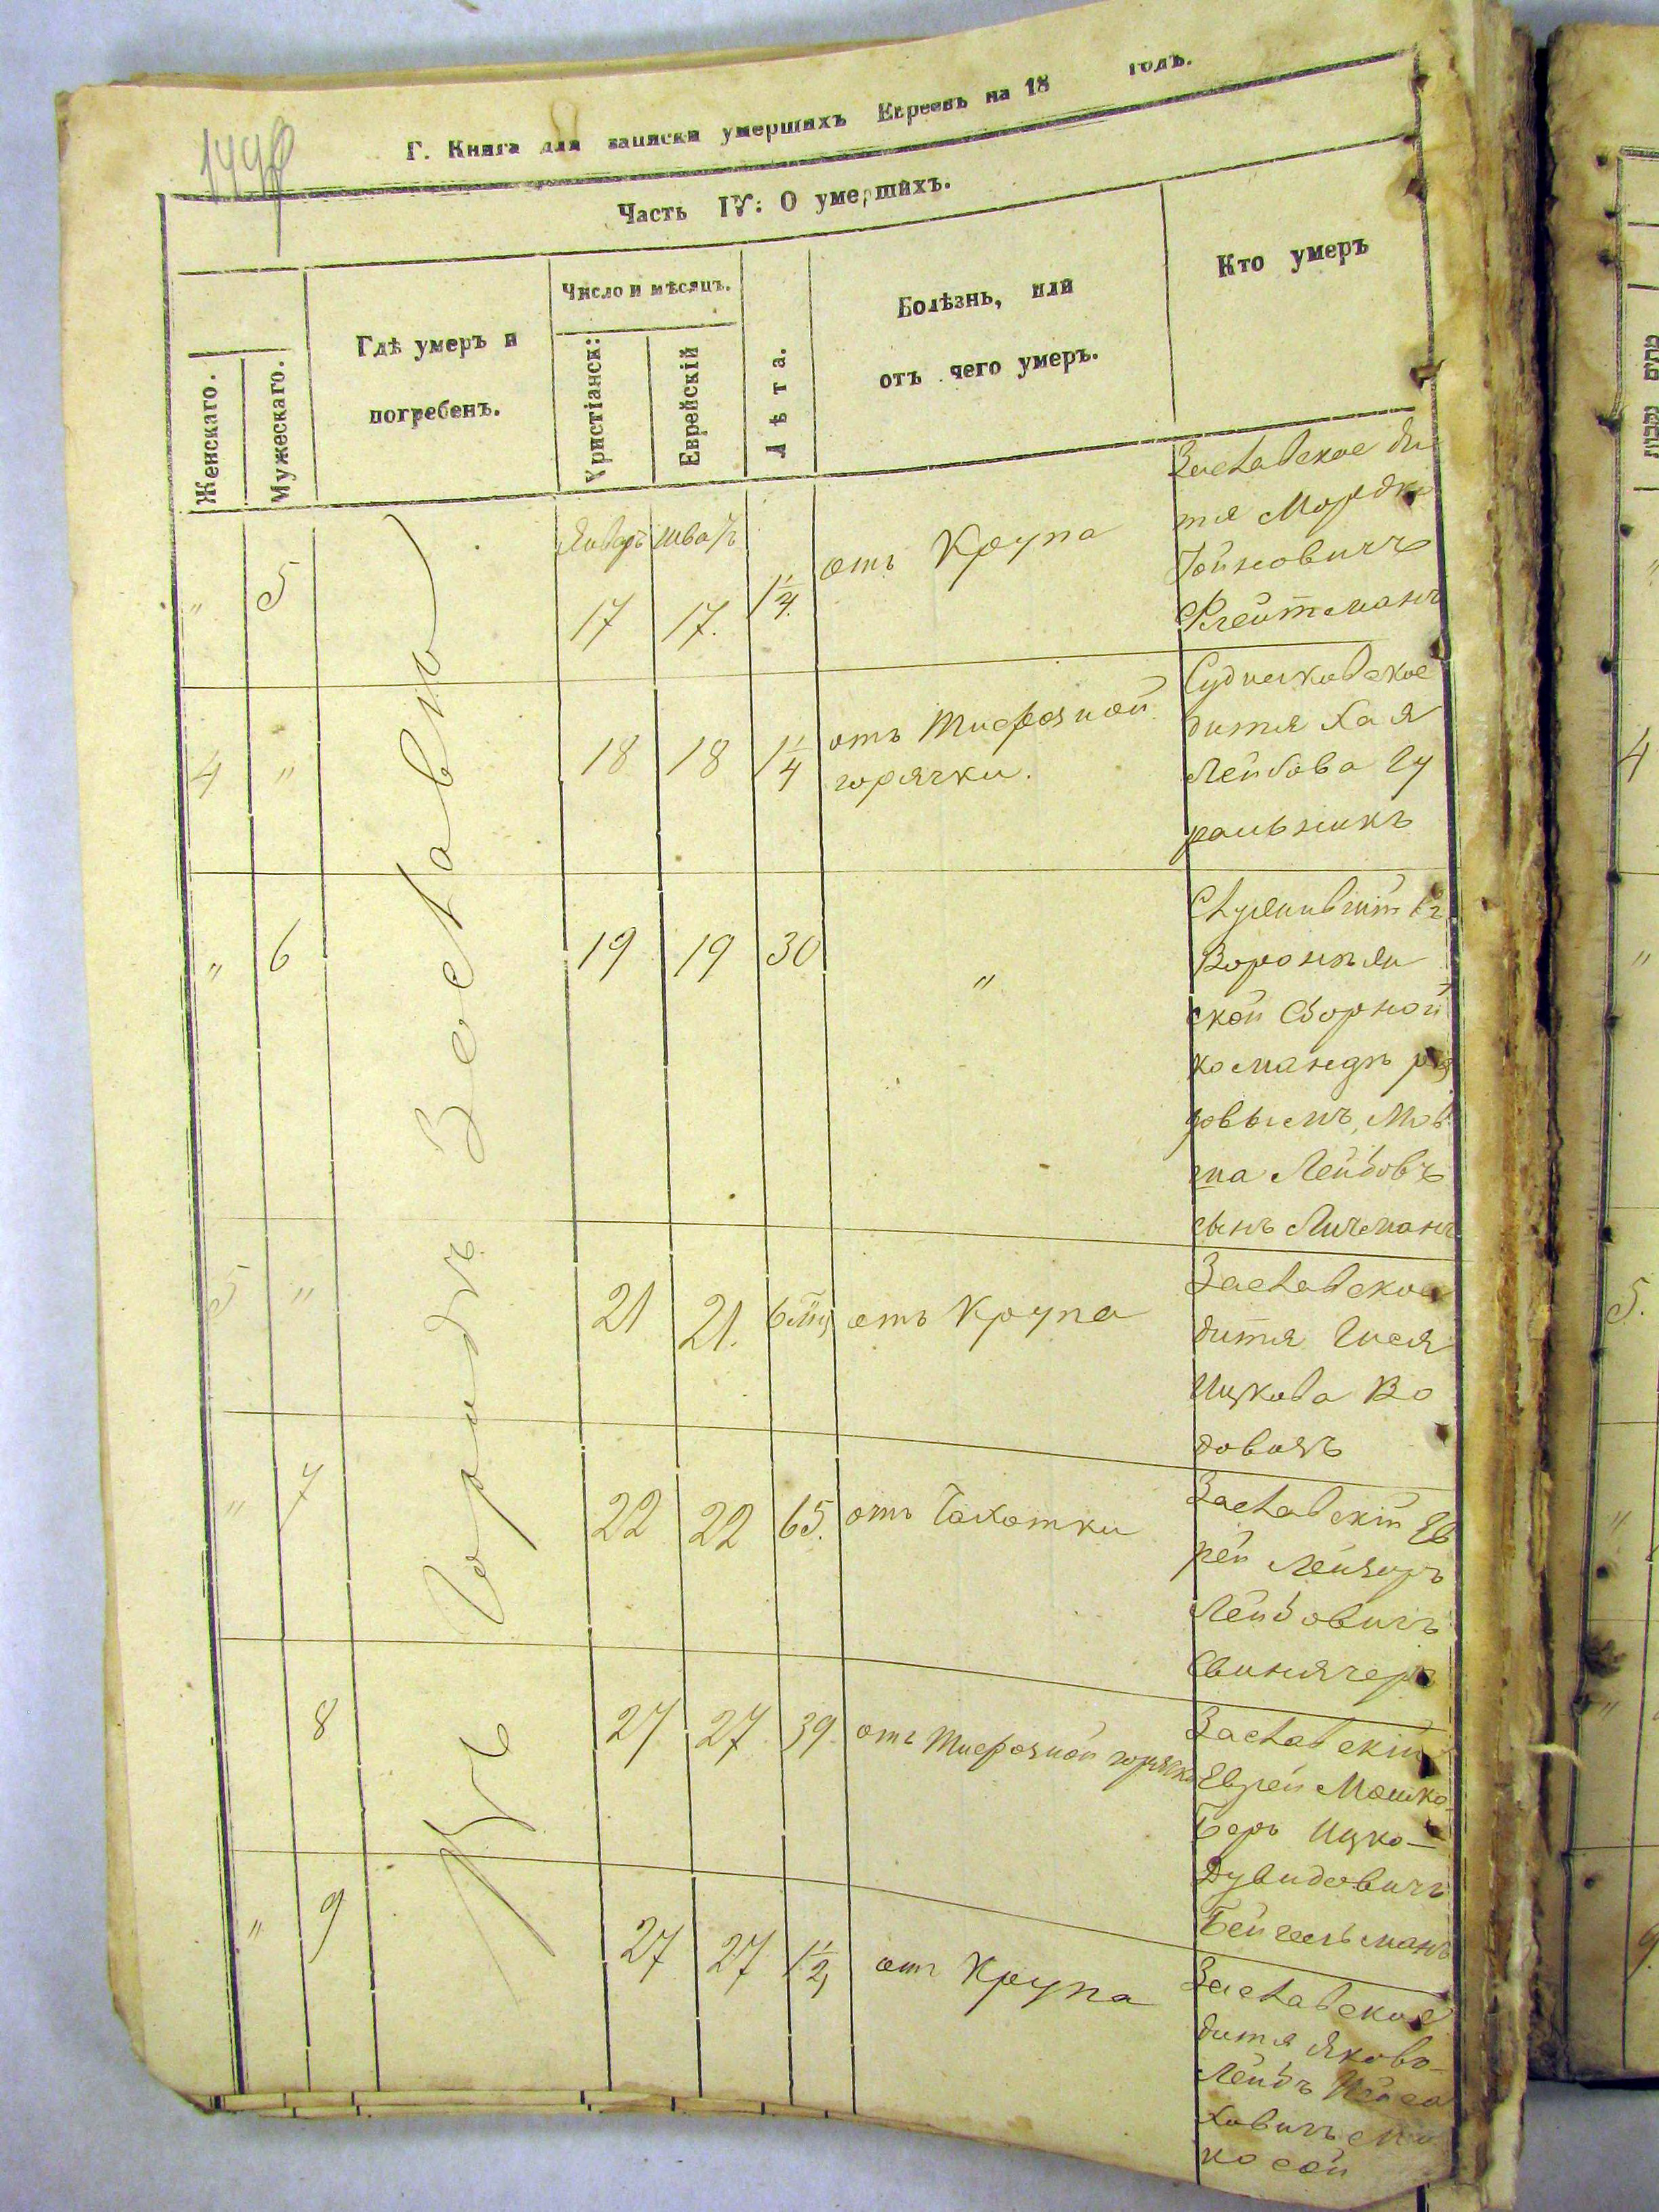 Г. Книга для записки умершихъ Евреевъ на 18 годъ.
Часть IV: О умершихъ.
Женскаго.
Мужескаго.
Гдѣ умеръ и
погребенъ.
Число и мѣсяцъ.
Христіанск:
Еврейскій
Лѣта.
Болѣзнь, или
отъ чего умеръ.
Кто умеръ
Въ Городѣ Заславлѣ
" 5 Январь Шватъ
17 17. 1 1/4 отъ Крупа
Заславское ди
тя Мордко
Тойновичъ
Клейтманъ
4 " 18 18 1 1/4 отъ Тифозной
горячки.
Судилковское
дитя Хая
Лейбова Гу
ральникъ
" 6 19 19 30 "
Служившій въ
ской Сборной
командѣ ря
довымъ, Мов
ша Лейбовъ
сынъ Личманъ
5 " 21 21. 6 мѣц отъ Крупа
Заславское
дитя Гися
Ицкова Во
довозъ
" 7 22 22 65. отъ Чахотки
Заславскій Ев
рей Лейзоръ
Лейбовичъ
Свинячеръ
8 27 27 39. отъ Тифозной горячки
Заславскій
Еврей Мошко-
Беръ Ицко-
Дувидовичъ
Бейгельманъ
" 9 27 27 1 1/2 отъ Крупа
Заславское
дитя Яковъ-
Лейбъ
ховичъ
4
"
5.
"
9.